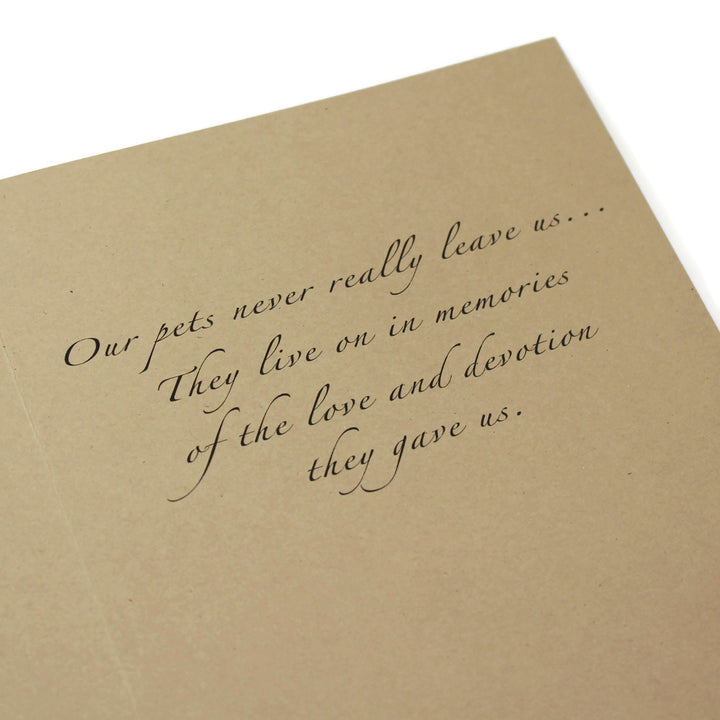 Our pets never really leave us...
They live on in memories
of the love and devotion
they gave us.